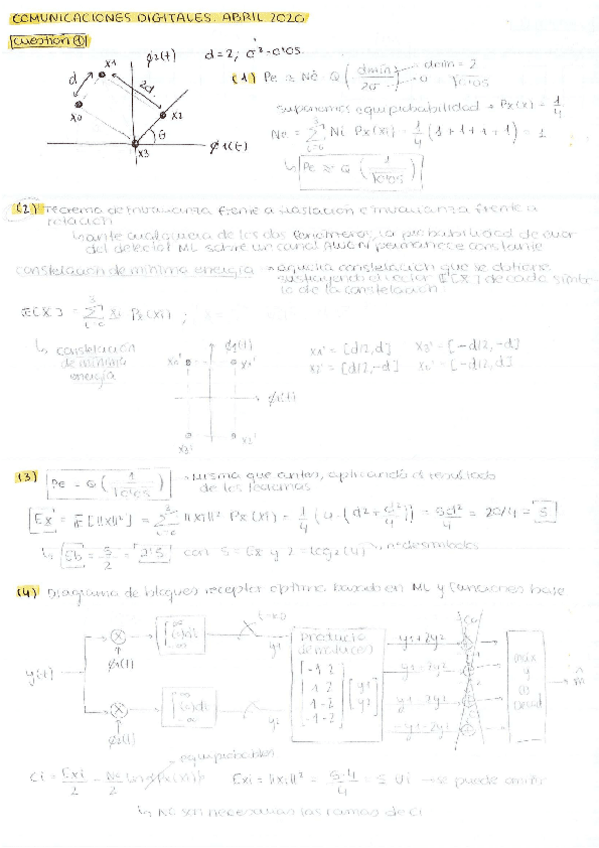 COMUNICACIONES DIGITALES. ABRIL 2020
CUESTIÓN 1
d=2; σ²=0'05
ϕ2(t)
x1
d
2d
x0
x2
θ
x3
ϕ1(t)
(1) Pe ≈ Ne · Q (dmin/2σ) dmin = 2
σ = √0'05
suponemos equiprobabilidad → Px(xi) = 1/4
Ne = Σ Ni Px(xi) = 1/4 (1+1+1+1) = 1
↳ Pe ≈ Q (1/√0'05)
(2) Teorema de invarianza frente a traslación e invarianza frente a
rotación
↳ ante cualquiera de los dos fenómenos, la probabilidad de error
del detector ML sobre un canal AWGN permanece constante
constelación de mínima energía → aquella constelación que se obtiene
sustrayendo el vector E[X] de cada símbo-
lo de la constelación.
E[X] = Σ xi Px(xi) ;
↳ constelación
de mínima
energía
ϕ2(t)
ϕ1(t)
x1' = [d/2, d] x3' = [-d/2, -d]
x2' = [d/2, -d] x0' = [-d/2, d]
(3) Pe = Q (1/√0'05) → misma que antes, aplicando el resultado
de los teoremas
Ex' = E[||x||²] = Σ ||xi||² Px(xi) = 1/4 (4·(d² + d²/4)) = 5d²/4 = 20/4 = 5
↳ Eb = 5/2 = 2'5 con 5 = Ex y 2 = log2(4) → nº de símbolos
(4) Diagrama de bloques receptor óptimo basado en ML y funciones base
y(t)
ϕ1(t)
ϕ2(t)
∫(·)dt
∫(·)dt
y1
y2
producto
de matrices
[-1 2
1 2
1 -2
-1 -2] [y1
y2]
-y1+2y2
y1+2y2
y1-2y2
-y1-2y2
máx
m̂
equiprobables
Ci = Exi/2 - No/2 ln(Px(xi))
Exi = ||xi||² = 5·4/4 = 5 ∀i → se puede omitir
↳ No son necesarias las ramas de Ci